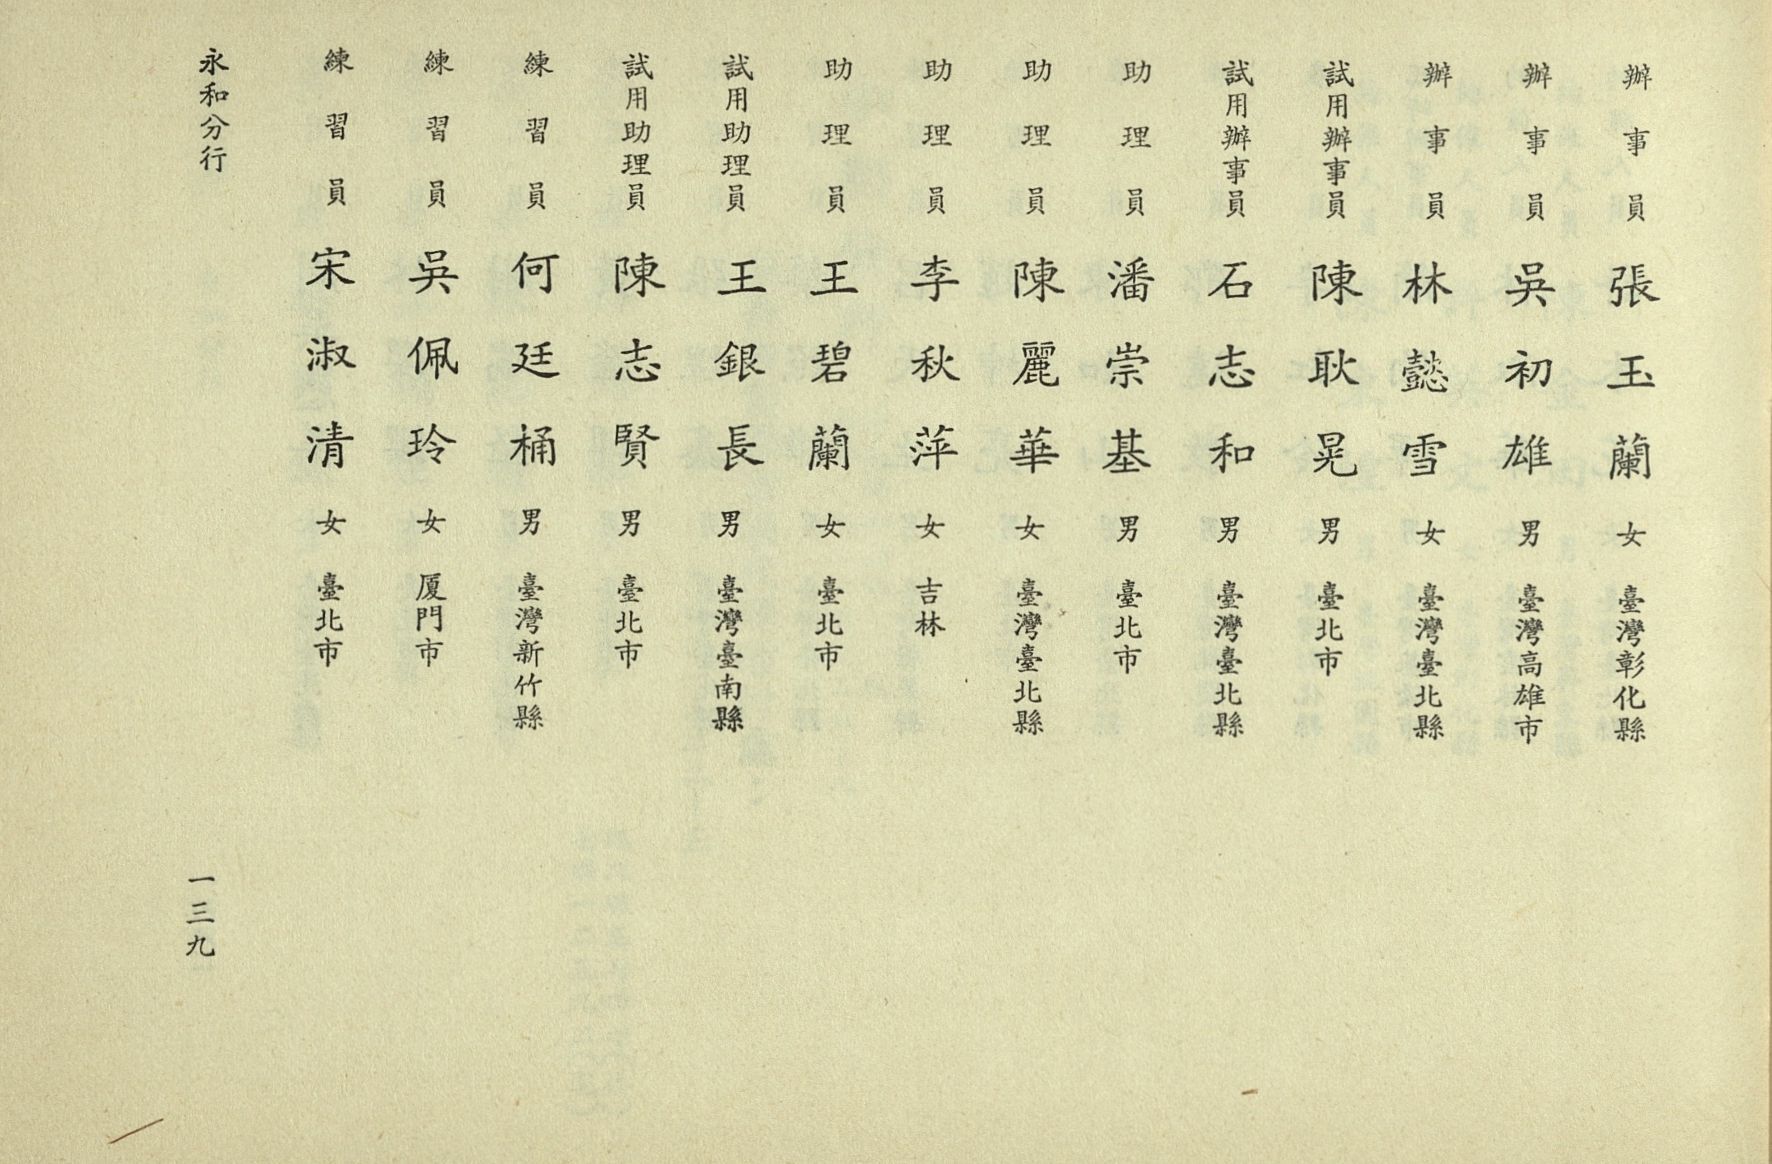 辦事員 張玉蘭 女 臺灣彰化縣
辦事員 吳初雄 男 臺灣高雄市
辦事員 林懿雪 女 臺灣臺北縣
試用辦事員 陳耿晃 男 臺北市
試用辦事員 石志和 男 臺灣臺北縣
助理員 潘崇基 男 臺北市
助理員 陳麗華 女 臺灣臺北縣
助理員 李秋萍 女 吉林
助理員 王碧蘭 女 臺北市
試用助理員 王銀長 男 臺灣臺南縣
試用助理員 陳志賢 男 臺北市
練習員 何廷桶 男 臺灣新竹縣
練習員 吳佩玲 女 厦門市
練習員 宋淑清 女 臺北市
永和分行 一三九